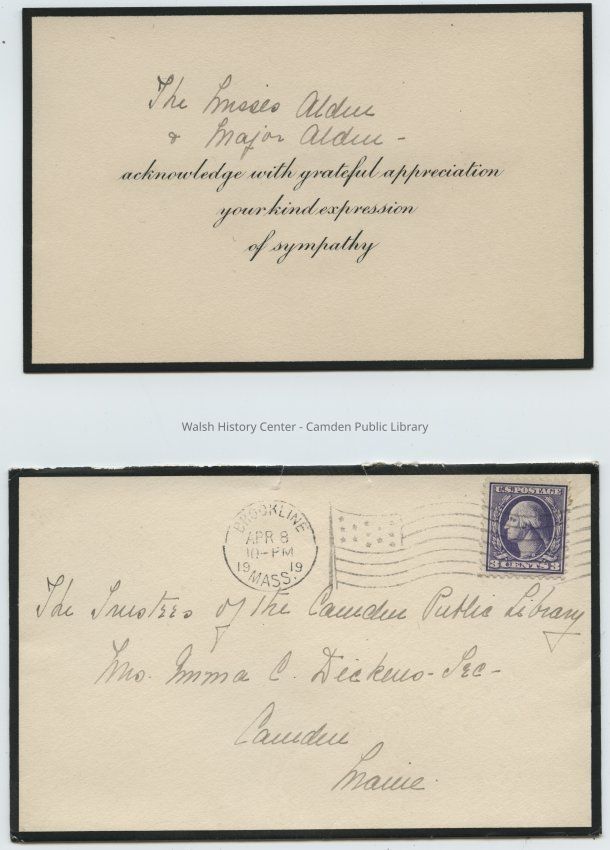 The Misses Alden
& Major Alden -
acknowledge with grateful appreciation
your kind expression
of sympathy
Walsh History Center - Camden Public Library
BROOKLINE
APR 8
10-PM
19 19
MASS.
U.S. POSTAGE
3 CENTS 3
The Trustees of the Camden Public Library
Mrs. Emma C. Dickens - Sec -
Camden
Maine.